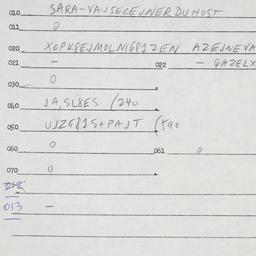 010 SARA-VAJSECEJNER DU HOST
011 0
020 XOPKPEJMOLNIGPIZEN AZEJNEVA
021 - 022 - QAZELX
030 0
040 JA, SLBES (240
050 UJZGBIS+PAJT (590
060 0 061 0
070 0
013 -